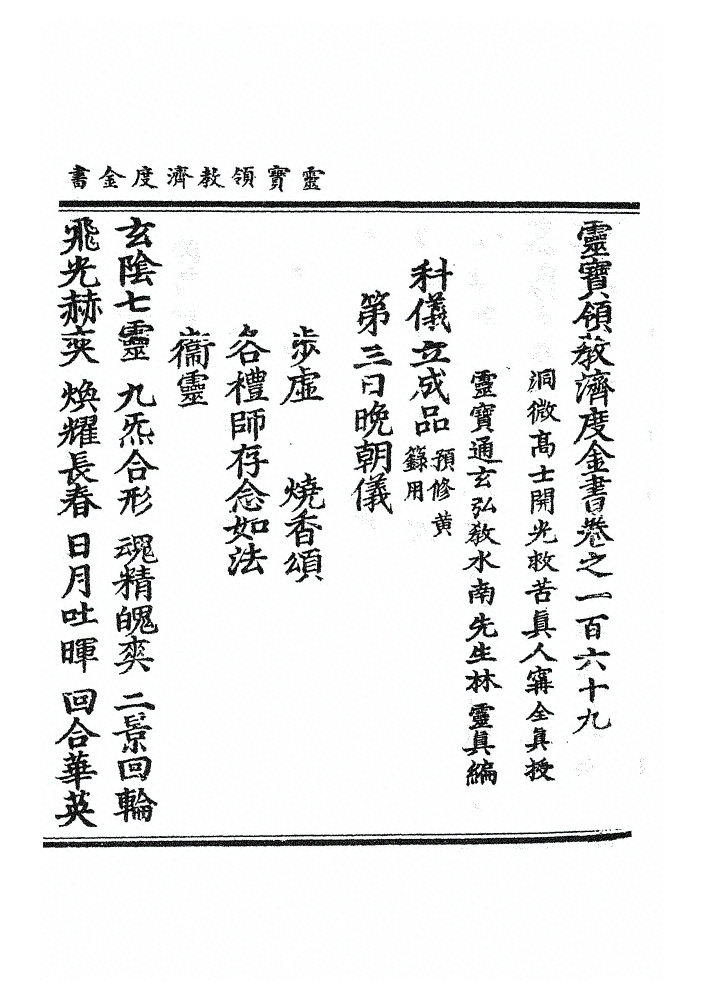 靈寶領教濟度金書
靈寶領教濟度金書卷之一百六十九
洞微高士開光救苦真人甯全真授
靈寶通玄弘教水南先生林靈真編
科儀立成品 預修黃籙用
第三日晚朝儀
步虛 燒香頌
各禮師存念如法
衞靈
玄陰七靈 九炁合形 魂精魄爽 二景回輪
飛光赫奕 煥耀長春 日月吐暉 回合華英